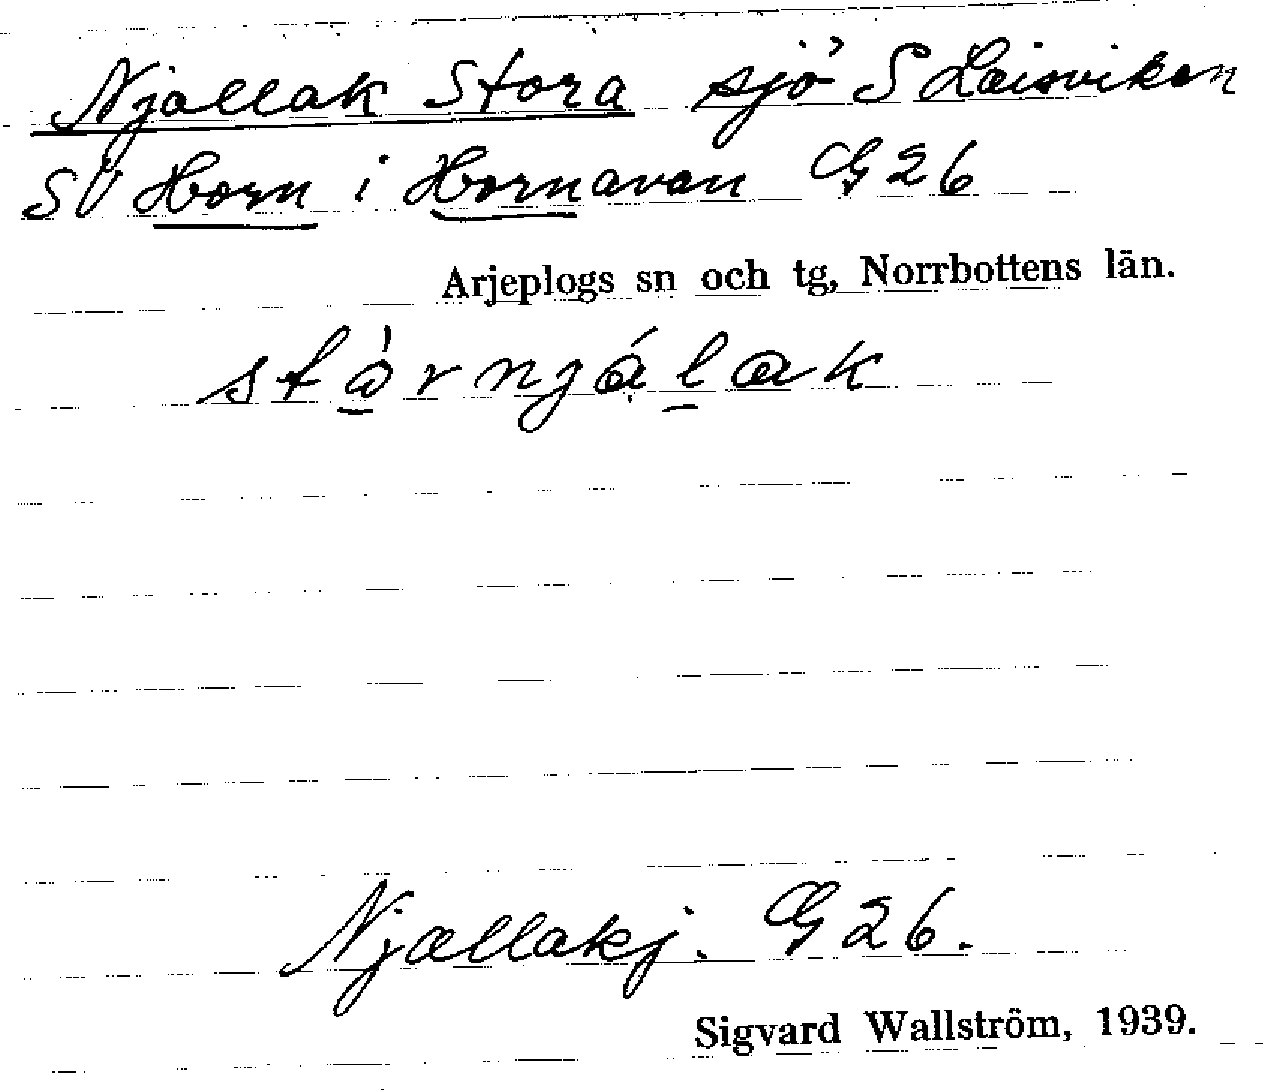 Njallak Stora sjö S Laisviken
SV Horn i Hornavan G 26
Arjeplogs sn och tg, Norrbottens län.
stå̀rnjálak
Njallakj. G 26.
Sigvard Wallström, 1939.